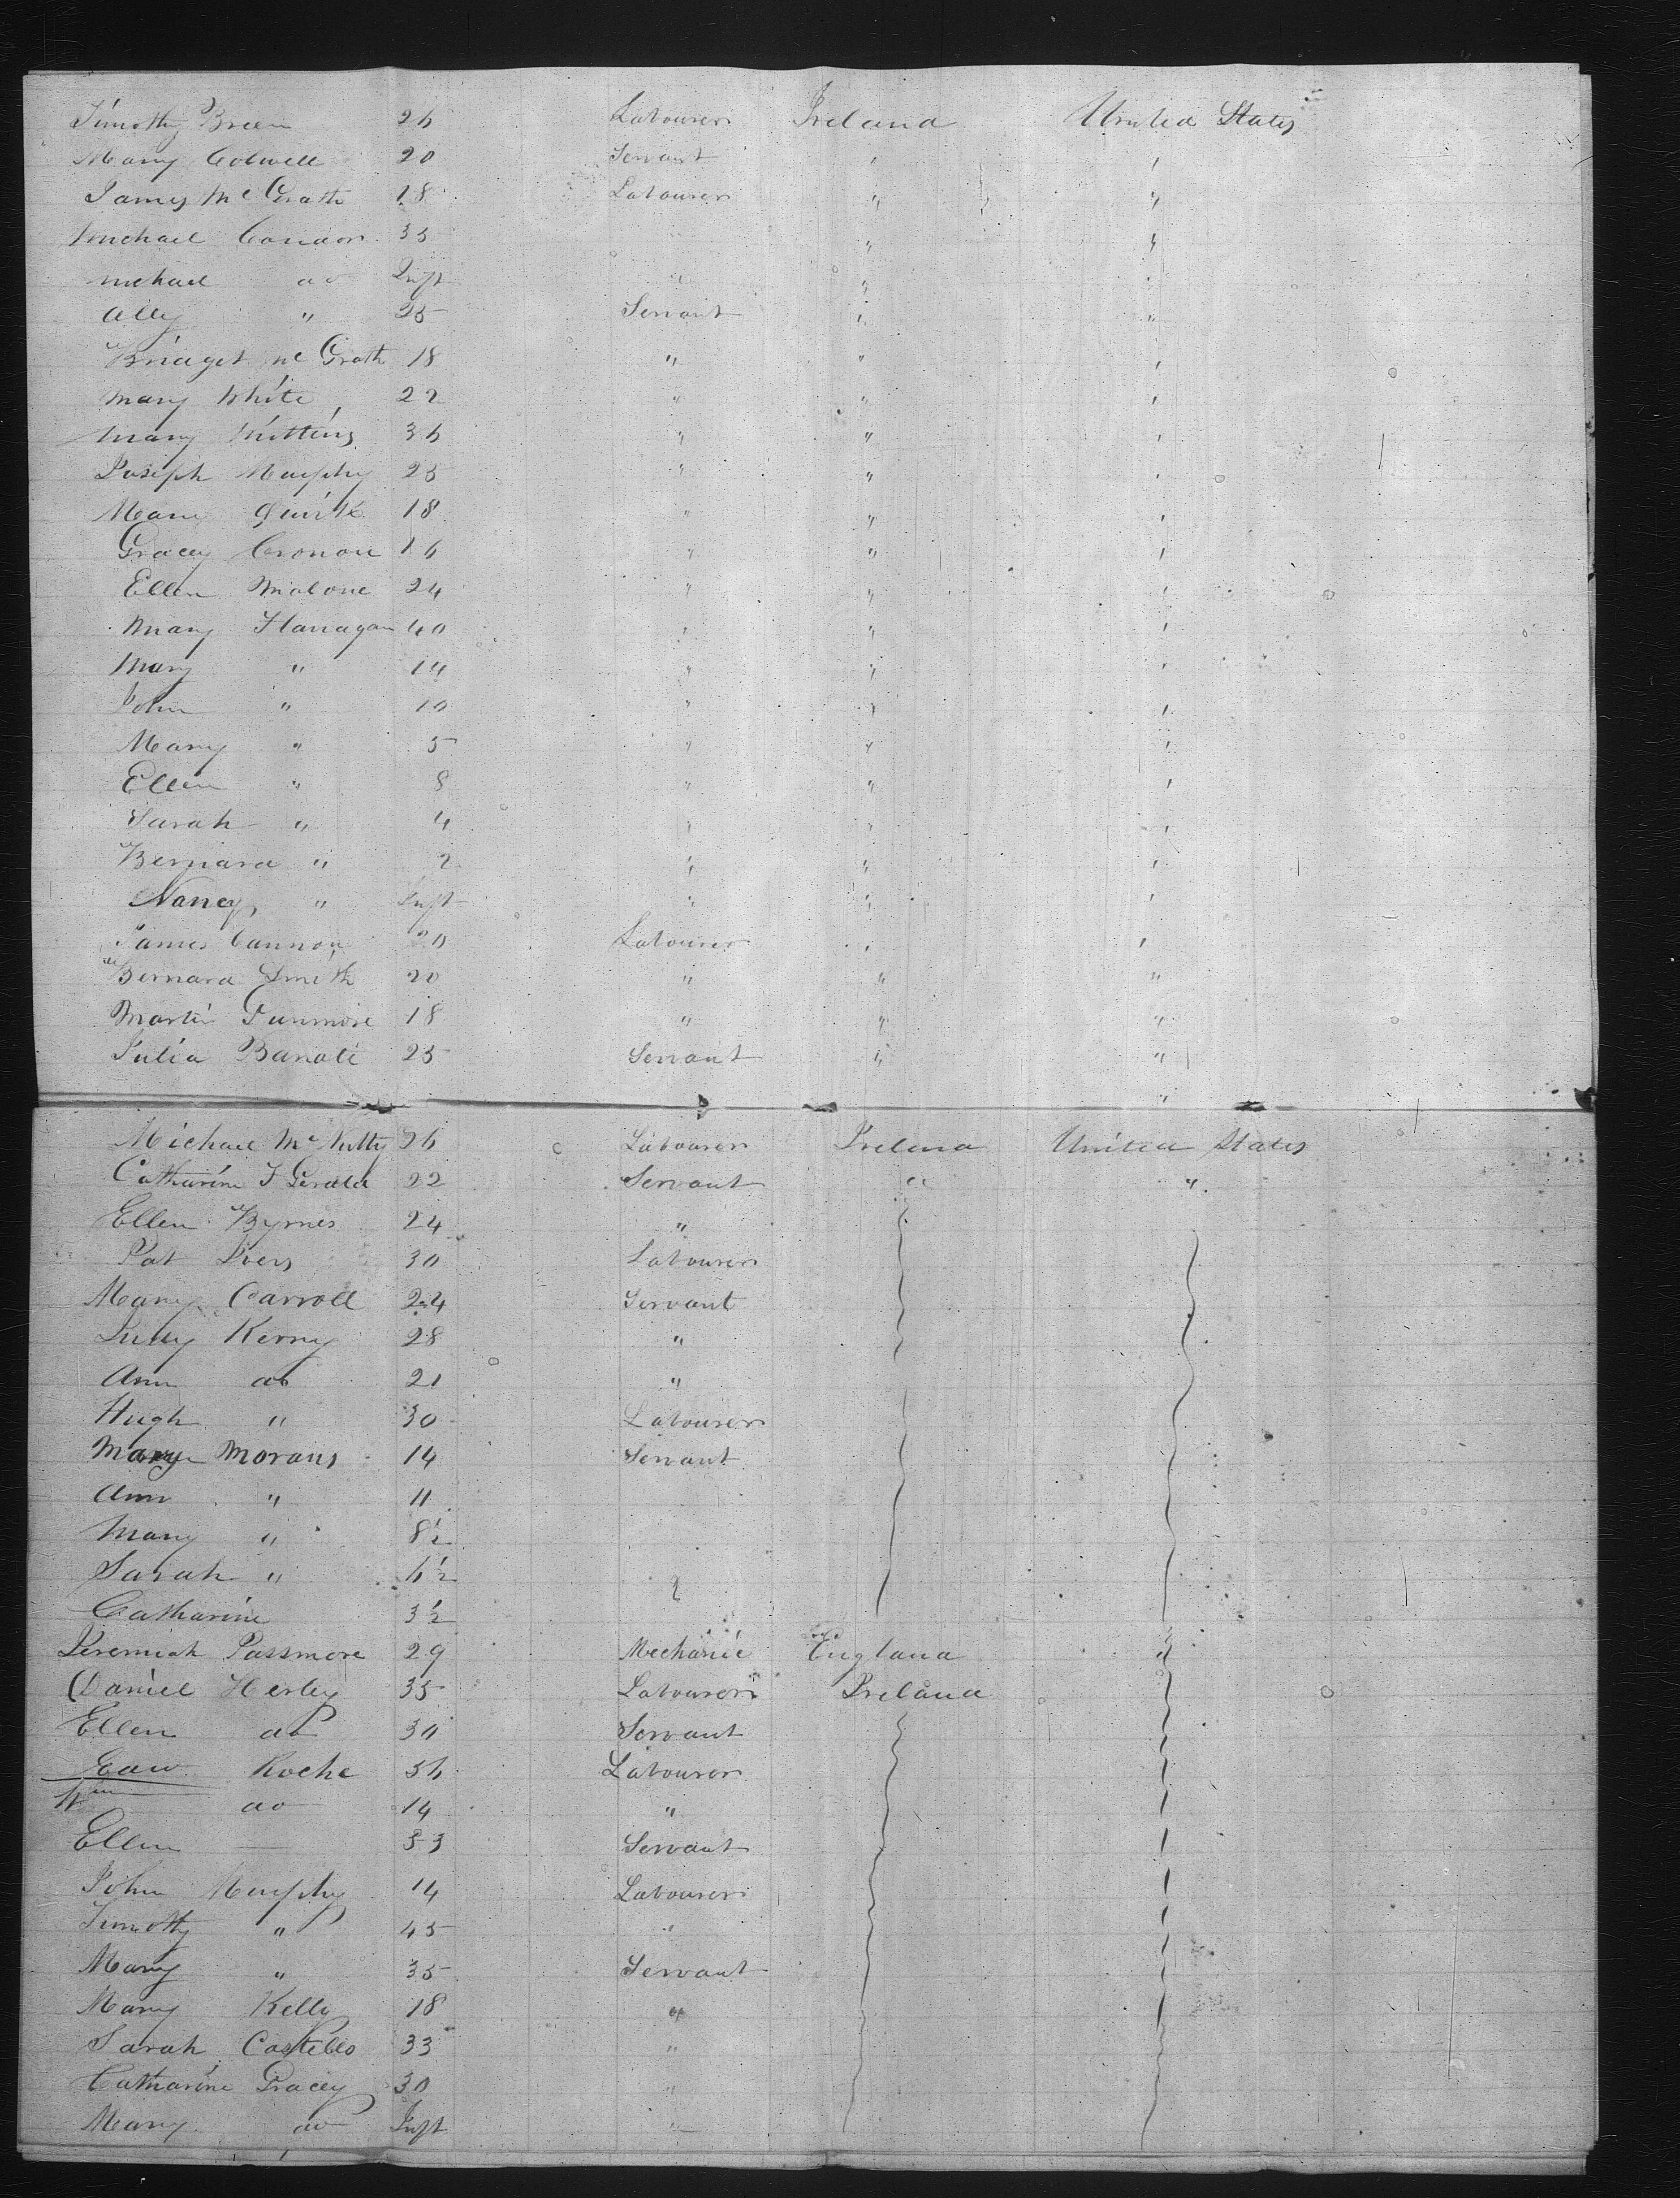 Timothy Breen 26 Labourer Ireland United States
Mary Colwell 20 Servant " "
James McGrath 18 Labourer " "
Michael Connor 35 " "
Michael do Inft " " "
Ally " 25 Servant " "
Bridget Mc Grath 18 " " "
Mary White 22 " " "
Mary 36 " " "
Joseph Murphy 25 " " "
Mary Quirk 18 " " "
Gracey Cronan 16 " " "
Ellen Malone 24 " " "
Mary Flanagan 40 " " "
Mary " 14 " " "
John " 10 " " "
Mary " 5 " " "
Ellen " 8 " " "
Sarah " 4 " " "
Bernard " 2 " " "
Nancy " Inft " " "
James Cannon 20 Labourer " "
Bernard Smith 20 " " "
Martin Dunmore 18 " " "
Julia 25 Servant " "
"
Michael McNulty 26 Labourer Ireland United States
Catharine F Gerald 22 Servant " "
Ellen Byrnes 24 "
Pat 30 Labourer
Mary Carroll 24 Servant
Kerny 28 "
Ann do 21 "
Hugh " 30 Labourer
Mary Morans 14 Servant
Ann " 11
Mary " 8½
Sarah " 6½
Catharine 3½
Jeremiah Passmore 29 Mechanic England "
Daniel Herley 35 Labourer Ireland
Ellen do 30 Servant
Edw Roche 36 Labourer
Wm do 14 "
Ellen — 33 Servant
John Murphy 14 Labourer
Timothy " 45 "
Mary " 35 Servant
Mary Kelly 18 "
Sarah Costello 33 "
Catharine Gracey 30 "
Mary do Inft "